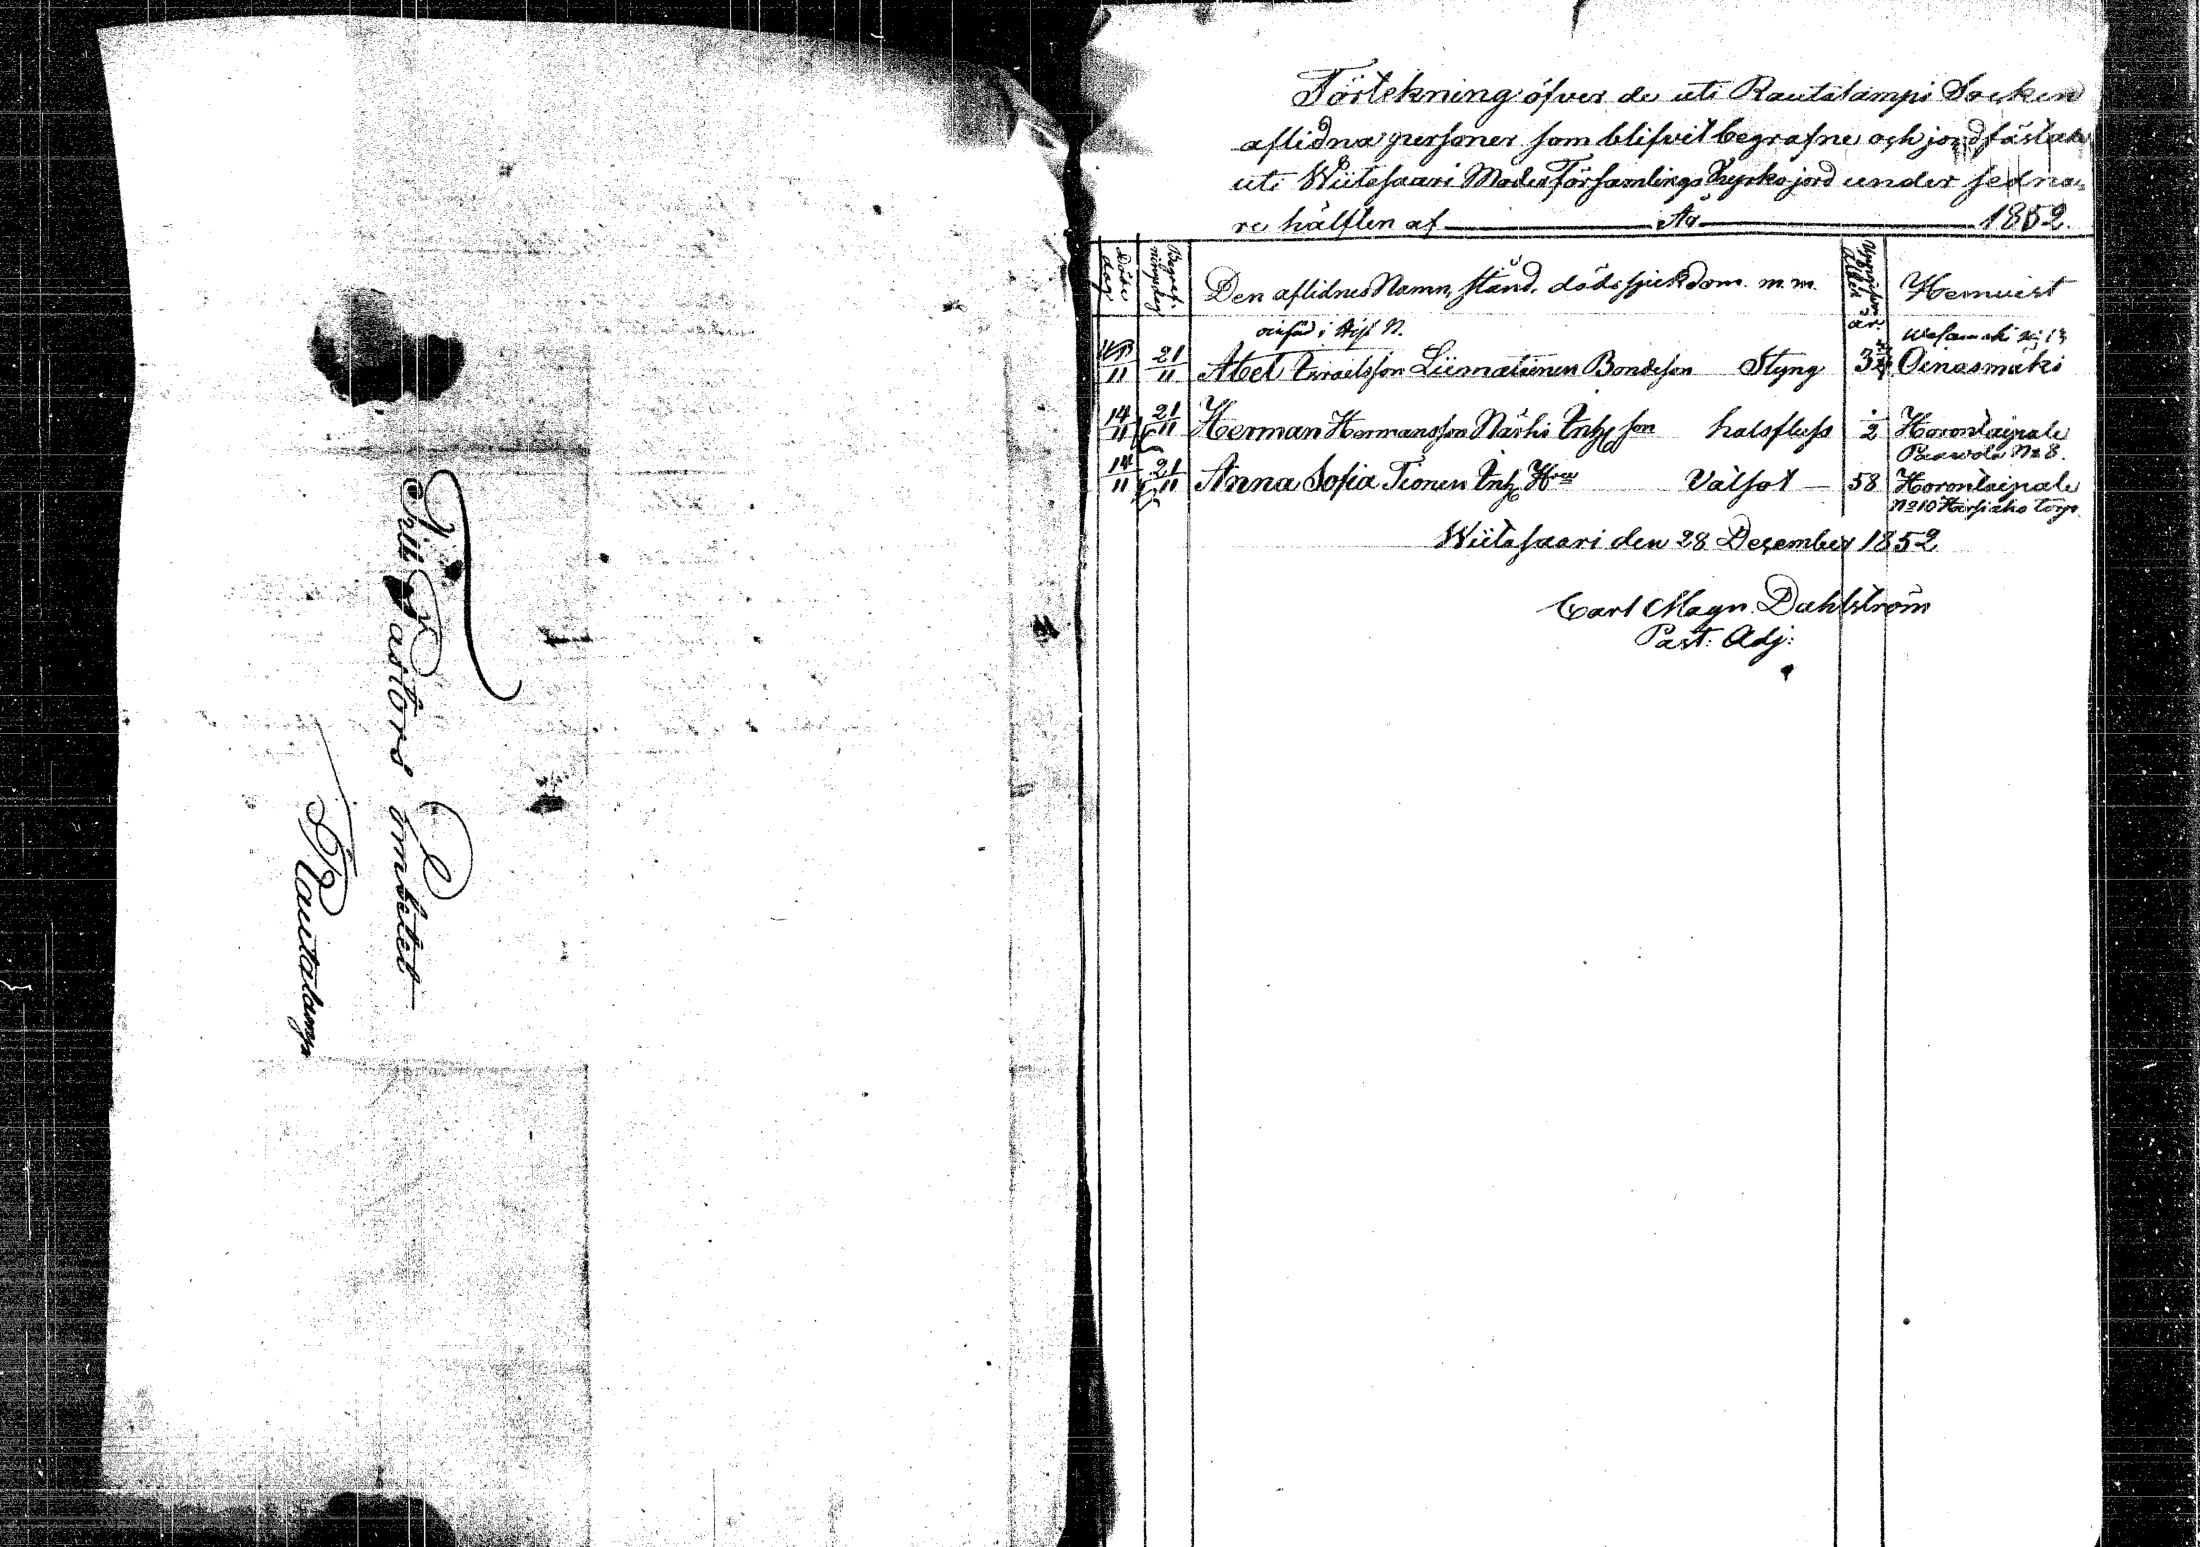 Till Pastors Embetet
Rautalampi
Förtekning öfver de uti Rautalampi Socken
aflidna personer som blifvit begrafne och jordfästade
uti Wiitasaari Moder Församlings Kyrkojord under sedna-
re hälften af — År — 1852.
Döds dag
Begrafningsdag
Den aflidnes Namn, stånd, dödssjukdom. m.m.
Ålder
år
Hemvist
21/11 Abel Israelsson Liimatainen Bondeson Styng 3 Oinasmäki
14/11 21/11 Herman Hermansson Närhi Inh son halsfluss 1/2 Horontaipale
Paavola No 8.
14/11 21/11 Anna Sofia Tionen Inh Hru Vatsot — 58 Horontaipale
No 10 torp.
Wiitasaari den 28 December 1852
Carl Magn. Dahlström
Past. Adj: